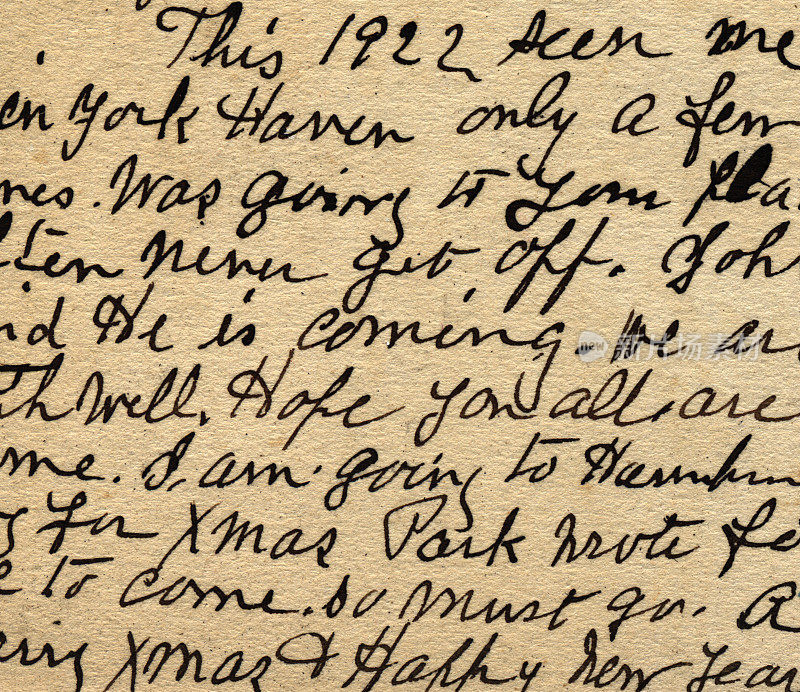 This 1922 seen me
en York Haven only a few
mes. Was going to your pla
ften never get off. Joh
id He is coming. We ar
th well. Hope you all are
ome. I am going to
g for Xmas Park wrote fo
e to come. so must go. A
erry Xmas & Happy New Year
new 新片场素材